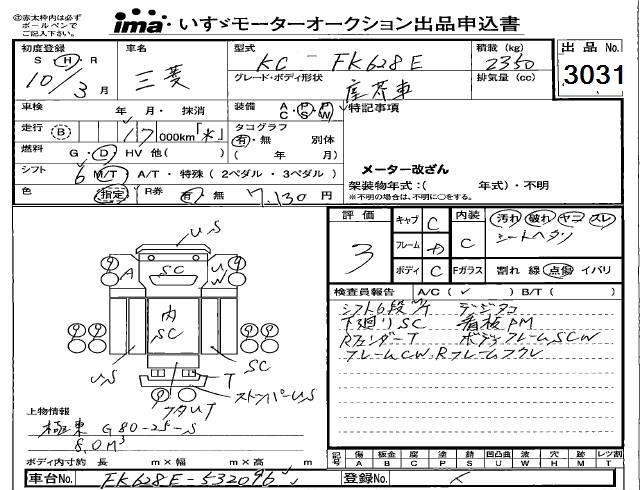 ①赤太枠内は必ず
ボールペンで
ご記入下さい。
ima いすゞモーターオークション出品申込書
初度登録 車名 型式 積載 (kg) 出品 No.
S H・R 三菱 KC - FK628E 2350 3031
10/3月 グレード・ボディ形状 塵芥車 排気量 (cc)
車検 年 月・抹消 装備 AC・PS・PW 特記事項
走行 B 17 000km「*」 タコグラフ 有・無 別体
燃料 G・D・HV 他( ) ( 年 月)
シフト 6 M/T・A/T・特殊 (2ペダル・3ペダル) メーター改ざん
色 指定 R券 有 無 7,130 円 架装物年式:( 年式)・不明
※不明の場合は、不明に○をする。
評価 キャブ C 内装 汚れ 破れ ヤコ スレ
3 フレーム C シートヘタリ
ボディ C Fガラス 割れ 線 点傷 イバリ
検査員報告 A/C( ✓ ) B/T( )
シフト6段 M/T デジタコ
下廻りSC 看板PM
RフェンダーT ボディフレームSCW
フレームCW、Rフレームフクレ
US
A SC U W
内
SC
US SC
T
ストッパーUS
フタUT
上物情報
極東 G80-25-S
8.0m³
ボディ内寸約 長 m×幅 m×高 m
記号 傷 A 板金 B 腐 C 塗 P 錆 S 凹凸曲 U 波 W 穴 H 跡 M レツ割 T
車台No. FK628E-532096 登録No. ×